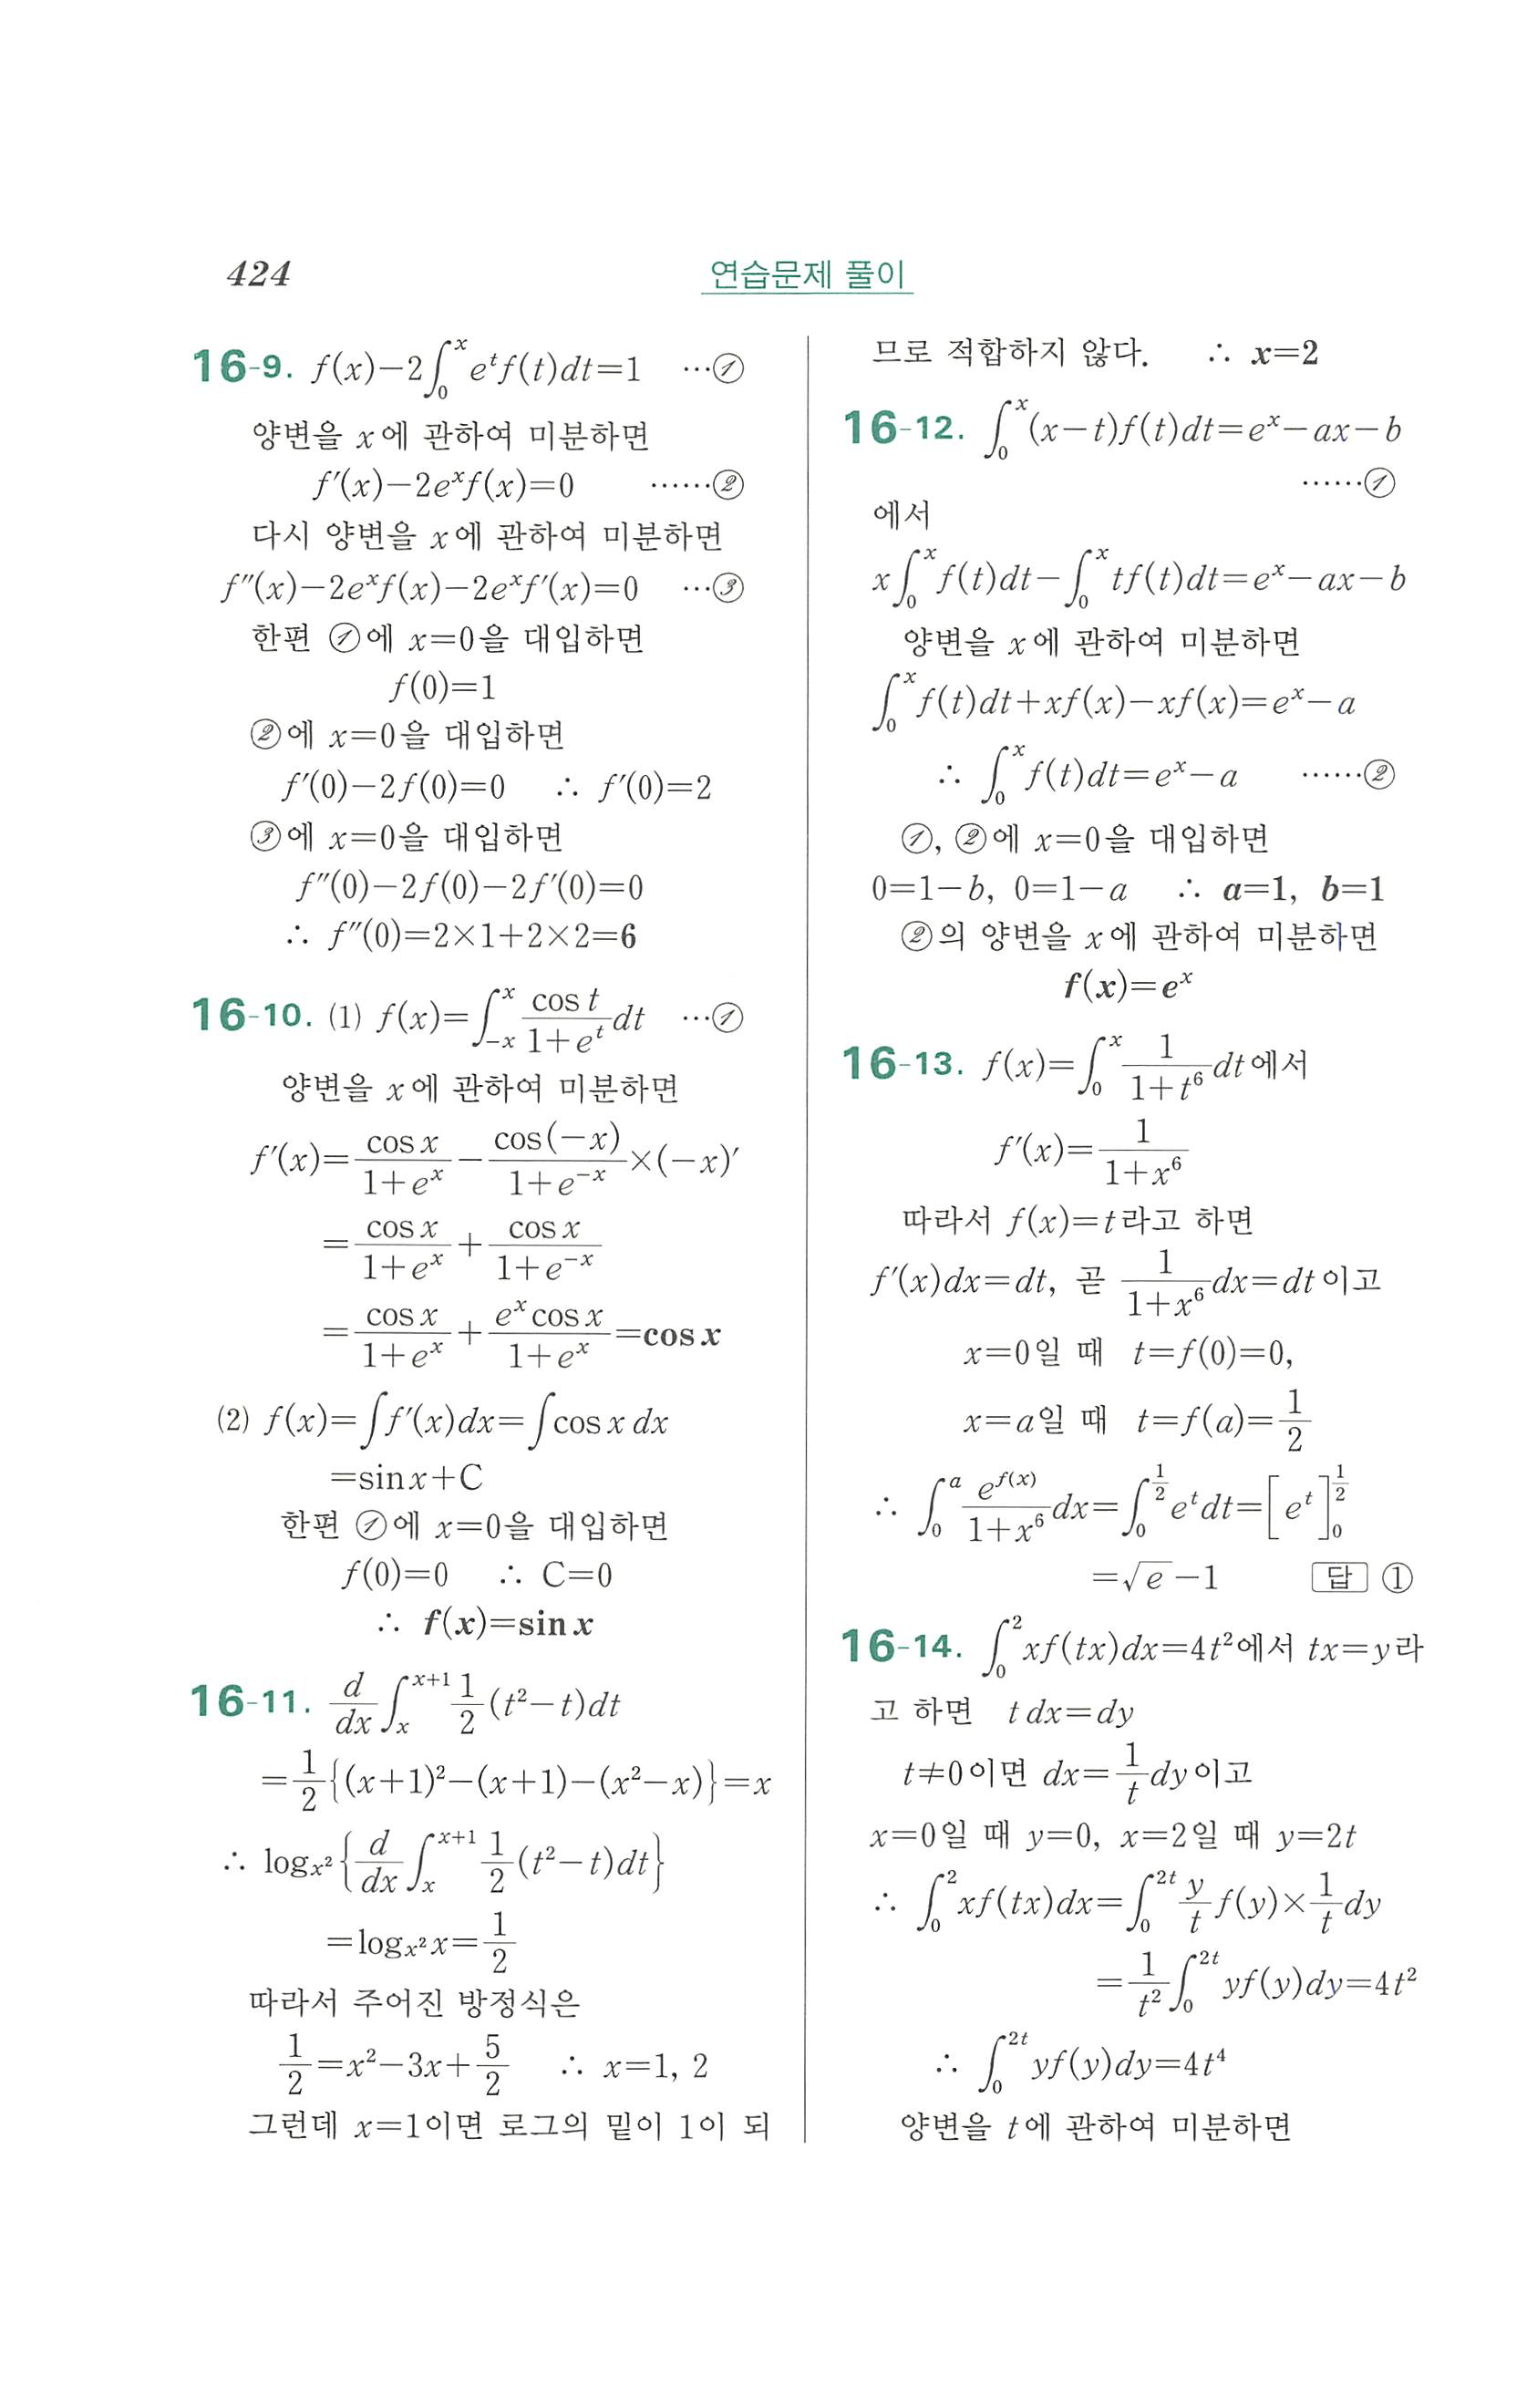 424
연습문제 풀이
16-9. f(x)−2∫₀ˣ eᵗf(t)dt=1 …①
양변을 x에 관하여 미분하면
f′(x)−2eˣf(x)=0 ……②
다시 양변을 x에 관하여 미분하면
f″(x)−2eˣf(x)−2eˣf′(x)=0 …③
한편 ①에 x=0을 대입하면
f(0)=1
②에 x=0을 대입하면
f′(0)−2f(0)=0 ∴ f′(0)=2
③에 x=0을 대입하면
f″(0)−2f(0)−2f′(0)=0
∴ f″(0)=2×1+2×2=6
16-10. (1) f(x)=∫₋ₓˣ \frac{cos t}{1+eᵗ}dt …①
양변을 x에 관하여 미분하면
f′(x)=\frac{cos x}{1+eˣ}−\frac{cos(−x)}{1+e⁻ˣ}×(−x)′
=\frac{cos x}{1+eˣ}+\frac{cos x}{1+e⁻ˣ}
=\frac{cos x}{1+eˣ}+\frac{eˣcos x}{1+eˣ}=cos x
(2) f(x)=∫f′(x)dx=∫cos x dx
=sin x+C
한편 ①에 x=0을 대입하면
f(0)=0 ∴ C=0
∴ f(x)=sin x
16-11. \frac{d}{dx}∫ₓˣ⁺¹ \frac{1}{2}(t²−t)dt
=\frac{1}{2}{(x+1)²−(x+1)−(x²−x)}=x
∴ log_{x²}{\frac{d}{dx}∫ₓˣ⁺¹ \frac{1}{2}(t²−t)dt}
=log_{x²}x=\frac{1}{2}
따라서 주어진 방정식은
\frac{1}{2}=x²−3x+\frac{5}{2} ∴ x=1, 2
그런데 x=1이면 로그의 밑이 1이 되
므로 적합하지 않다. ∴ x=2
16-12. ∫₀ˣ(x−t)f(t)dt=eˣ−ax−b
……①
에서
x∫₀ˣf(t)dt−∫₀ˣtf(t)dt=eˣ−ax−b
양변을 x에 관하여 미분하면
∫₀ˣf(t)dt+xf(x)−xf(x)=eˣ−a
∴ ∫₀ˣf(t)dt=eˣ−a ……②
①, ②에 x=0을 대입하면
0=1−b, 0=1−a ∴ a=1, b=1
②의 양변을 x에 관하여 미분하면
f(x)=eˣ
16-13. f(x)=∫₀ˣ \frac{1}{1+t⁶}dt에서
f′(x)=\frac{1}{1+x⁶}
따라서 f(x)=t라고 하면
f′(x)dx=dt, 곧 \frac{1}{1+x⁶}dx=dt이고
x=0일 때 t=f(0)=0,
x=a일 때 t=f(a)=\frac{1}{2}
∴ ∫₀ᵃ \frac{e^{f(x)}}{1+x⁶}dx=∫_0^{\frac{1}{2}}eᵗdt=[eᵗ]_0^{\frac{1}{2}}
=√e−1 답 ①
16-14. ∫₀²xf(tx)dx=4t²에서 tx=y라
고 하면 t dx=dy
t≠0이면 dx=\frac{1}{t}dy이고
x=0일 때 y=0, x=2일 때 y=2t
∴ ∫₀²xf(tx)dx=∫_0^{2t}\frac{y}{t}f(y)×\frac{1}{t}dy
=\frac{1}{t²}∫_0^{2t}yf(y)dy=4t²
∴ ∫_0^{2t}yf(y)dy=4t⁴
양변을 t에 관하여 미분하면